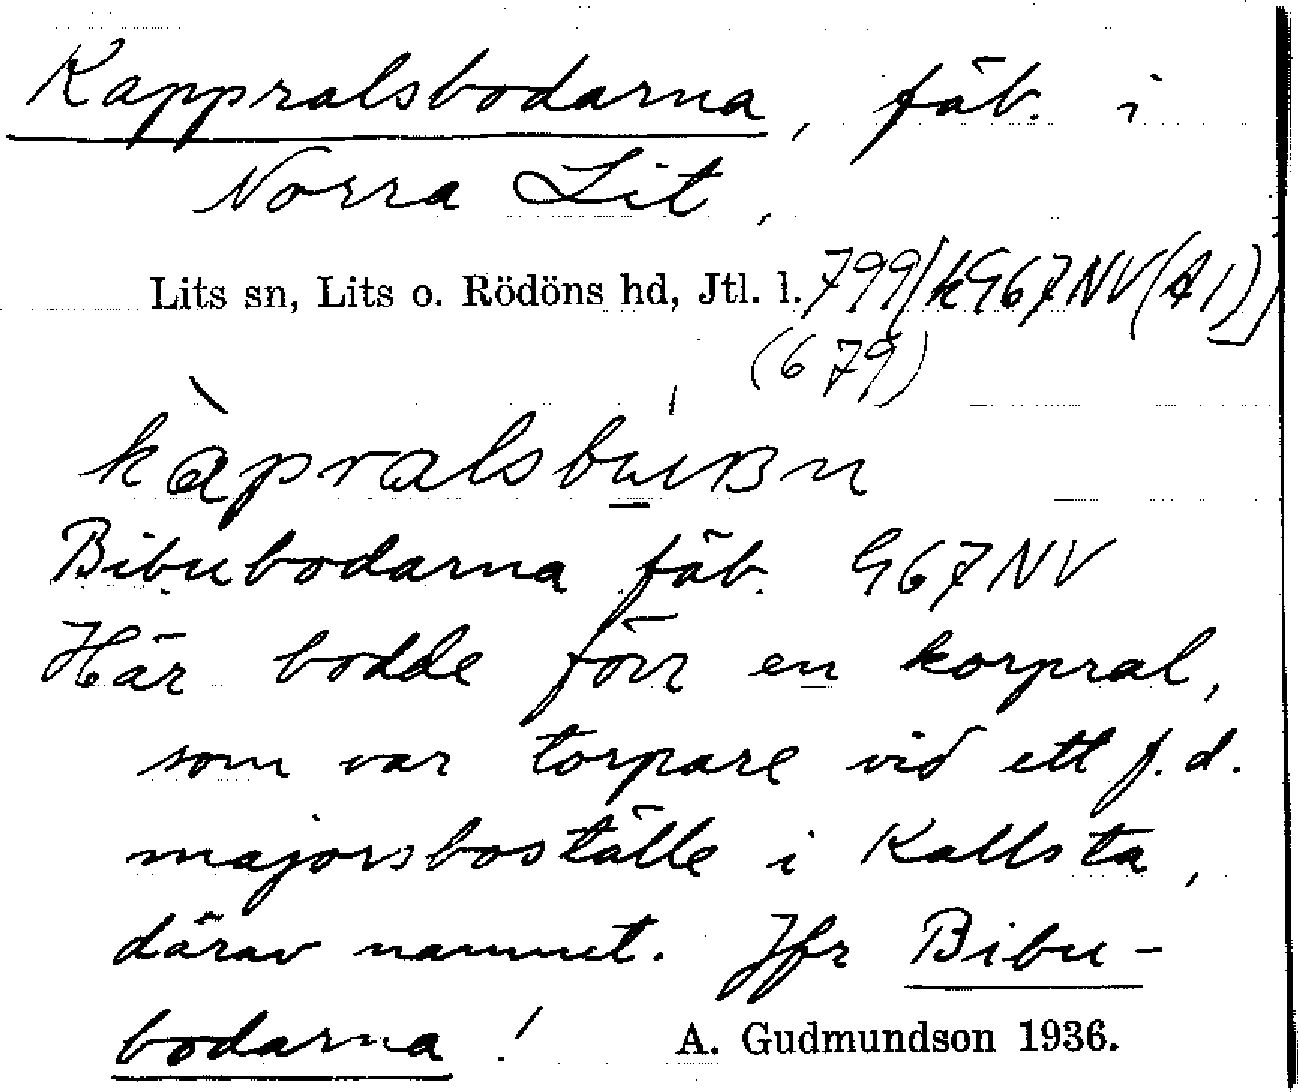 Kappralsbodarna, fäb. i
Norra Lit,
Lits sn, Lits o. Rödöns hd, Jtl. l. 799/k G67NV(A1)
(679)
kàpralsbu
Bibubodarna fäb. G67NV
Här bodde förr en korpral,
som var torpare vid ett f.d.
majorsboställe i Kallsta,
därav namnet. Jfr Bibu-
bodarna!
A. Gudmundson 1936.